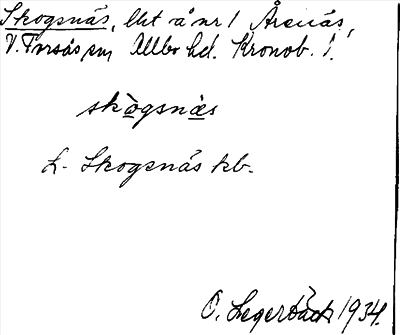 Skogsnäs, lht å nr 1 Årsnäs,
V. Torsås sn, Allbo hd. Kronob. l.
skògsnæ̀s
L. Skogsnäs kb.
O. Legerbäck 1934.